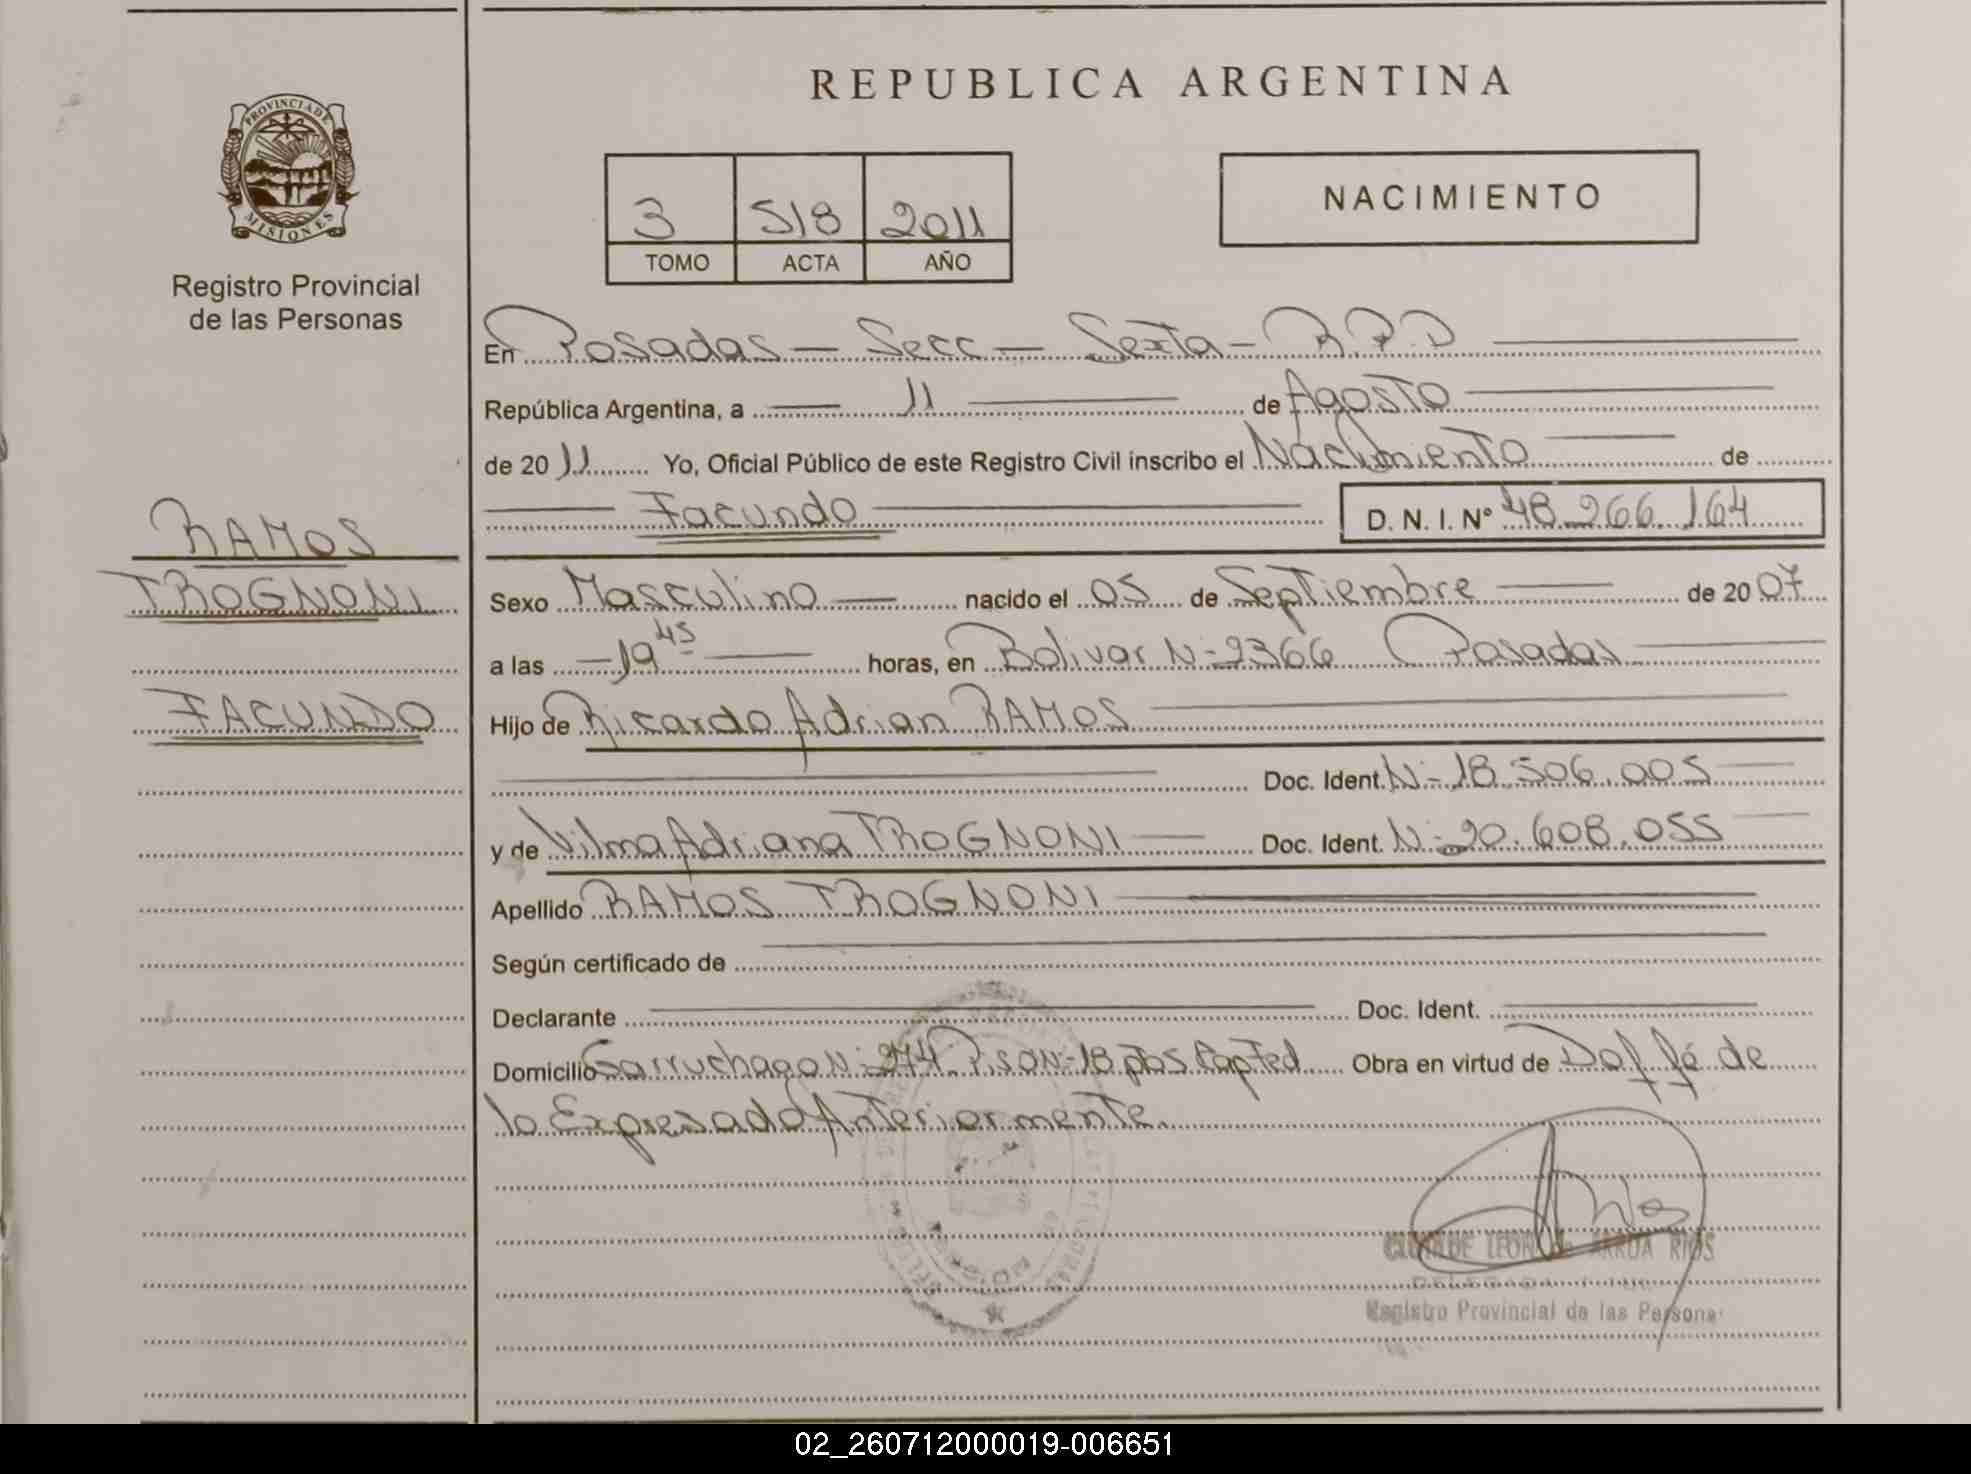 REPUBLICA ARGENTINA
PROVINCIA DE
MISIONES
Registro Provincial
de las Personas
3 518 2011
TOMO ACTA AÑO
NACIMIENTO
En Posadas — Secc — Sexta - R.P.D
República Argentina, a — 11 — de Agosto
de 20 11 Yo, Oficial Público de este Registro Civil inscribo el Nacimiento de
Facundo D. N. I. Nº 48.266.164
RAMOS
TROGNONI
FACUNDO
Sexo Masculino — nacido el 05 de Septiembre — de 20 07
a las — 19 45 — horas, en Bolivar N- 2366 Posadas
Hijo de Ricardo Adrian RAMOS
Doc. Ident. N- 18.506.005
y de Vilma Adriana TROGNONI — Doc. Ident. N- 20.608.055
Apellido RAMOS TROGNONI
Según certificado de
Declarante Doc. Ident.
Domicilio Garruchago N- 274 Obra en virtud de Doy fé de
lo Expresado Anteriormente.
LEON de ARRUA RIOS
DELEGADA
Registro Provincial de las Persona
02_260712000019-006651